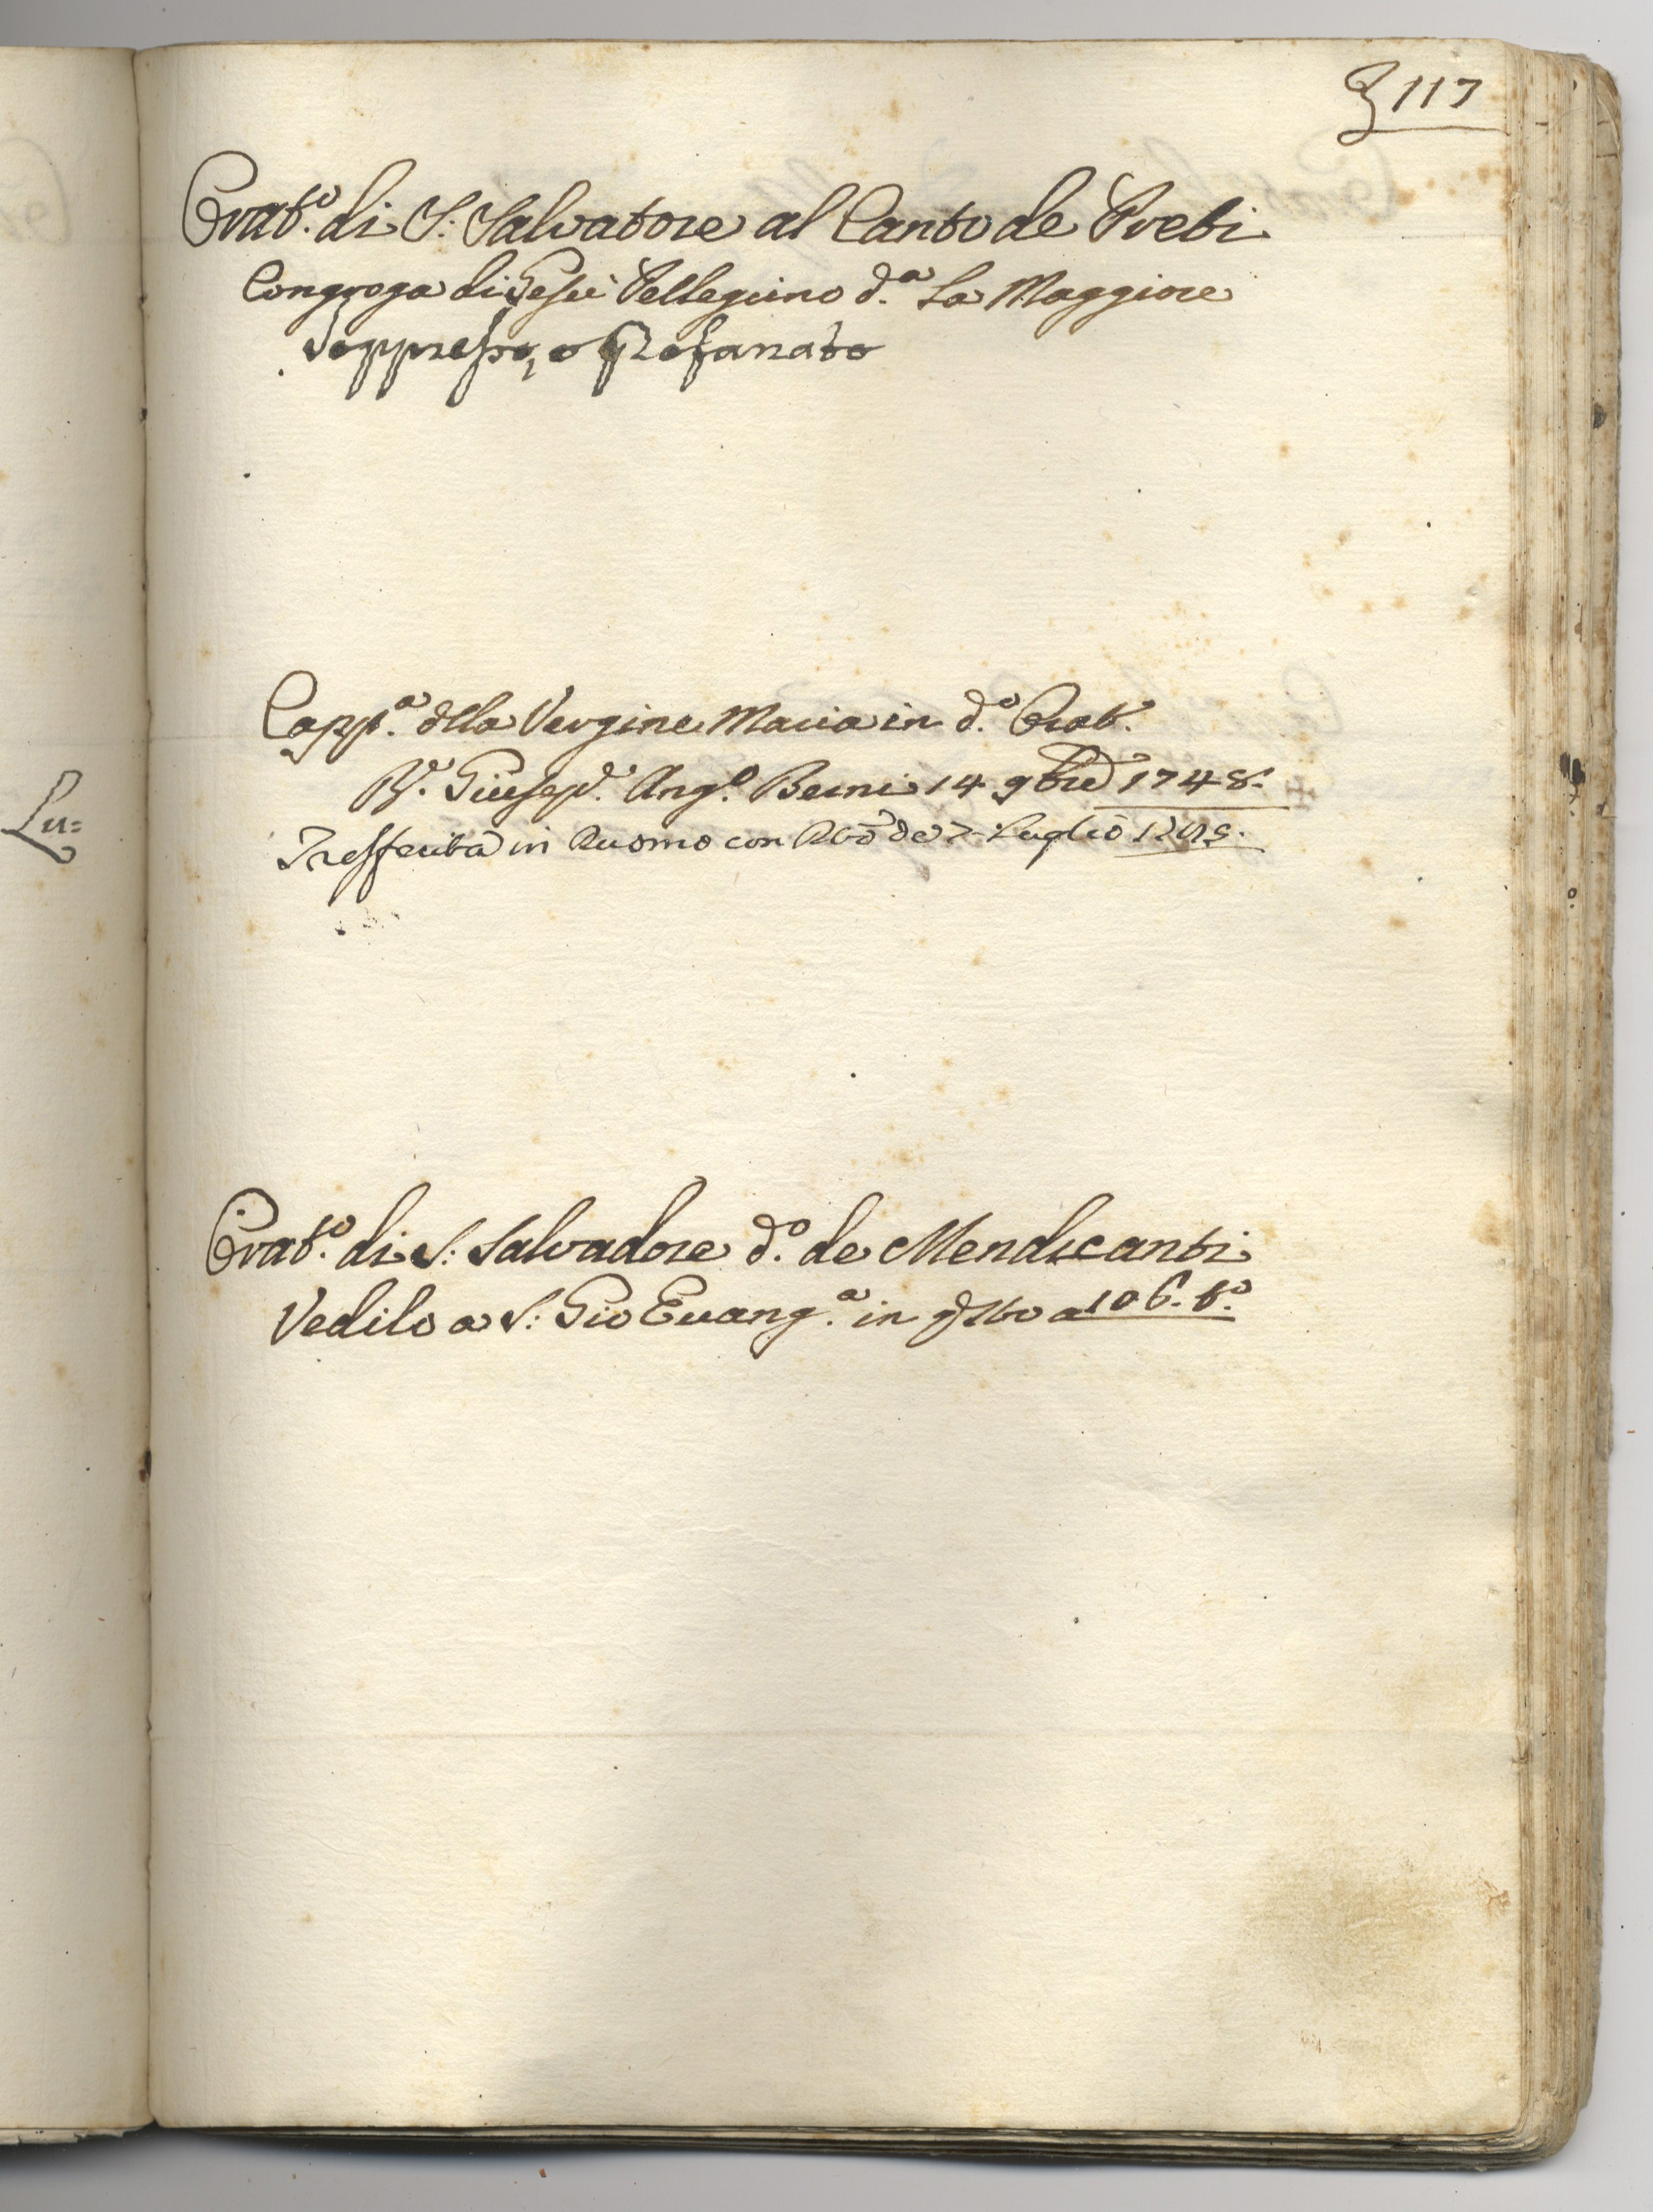 117
Orat.º di S: Salvatore al Canto de Preti
Congrega di Gesù Pellegrino d.ª La Maggiore
Soppresso, e Profanato
Capp.ª dlla Vergine Maria in d.º Orat.º
Rº. Giusep.e Ang.º Berni 14 9bre 1748.
Lu=
Trasferita in Duomo con de 7 Luglio
Orat.º di S: Salvadore d.º de Mendicanti
Vedilo a S: Gio Evang.ª in qsto a 106. tº